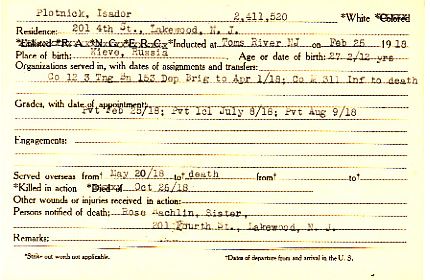 Plotnick, Isador 2,411,520 *White *Colored
Residence: 201 4th St., Lakewood, N. J.
*Enlisted *R. A. *N. G. *E. R. C. *Inducted at Toms River NJ on Feb 25 1918
Place of birth: Kieve, Russia Age or date of birth: 27 2/12 yrs
Organizations served in, with dates of assignments and transfers:
Co 12 3 Tng Bn 153 Dep Brig to Apr 1/18; Co K 311 Inf to death
Grades, with date of appointment:
Pvt Feb 25/18; Pvt 1cl July 8/18; Pvt Aug 9/18
Engagements:
Served overseas from† May 20/18 to† death from† to†
*Killed in action *Died of Oct 26/18
Other wounds or injuries received in action:
Persons notified of death: Rose Bachlin, Sister,
201 Fourth St., Lakewood, N. J.
Remarks:
*Strike out words not applicable. †Dates of departure from and arrival in the U. S.